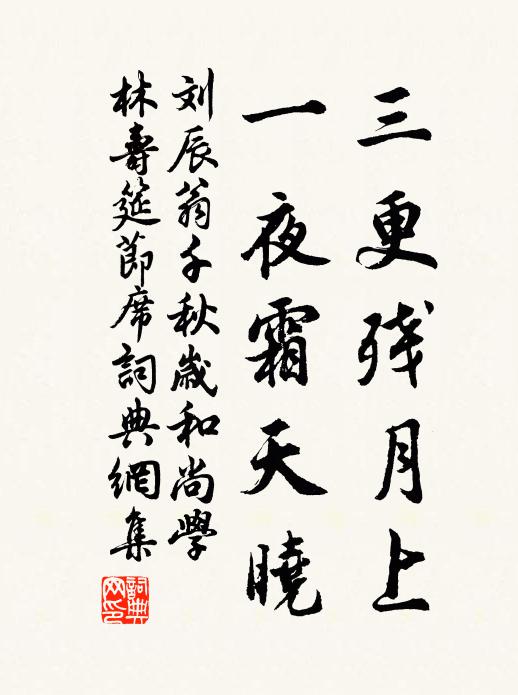 三更残月上
一夜霜天曉
刘辰翁千秋歲和尚學
林壽筵節席詞典網集
詞典网印